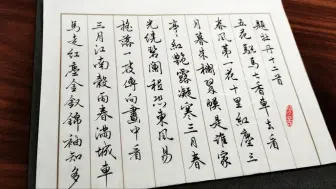 題牡丹十二首
五花驄馬七香車去看
春風第一花十里紅塵三
月暮朱欄翠幙是誰家
亭紅艷露凝寒三月春
光繞闌秪恐東風易
落一枝傳向畫中看
三月江南穀雨春滿城車
馬走紅塵金釵錦袖知多